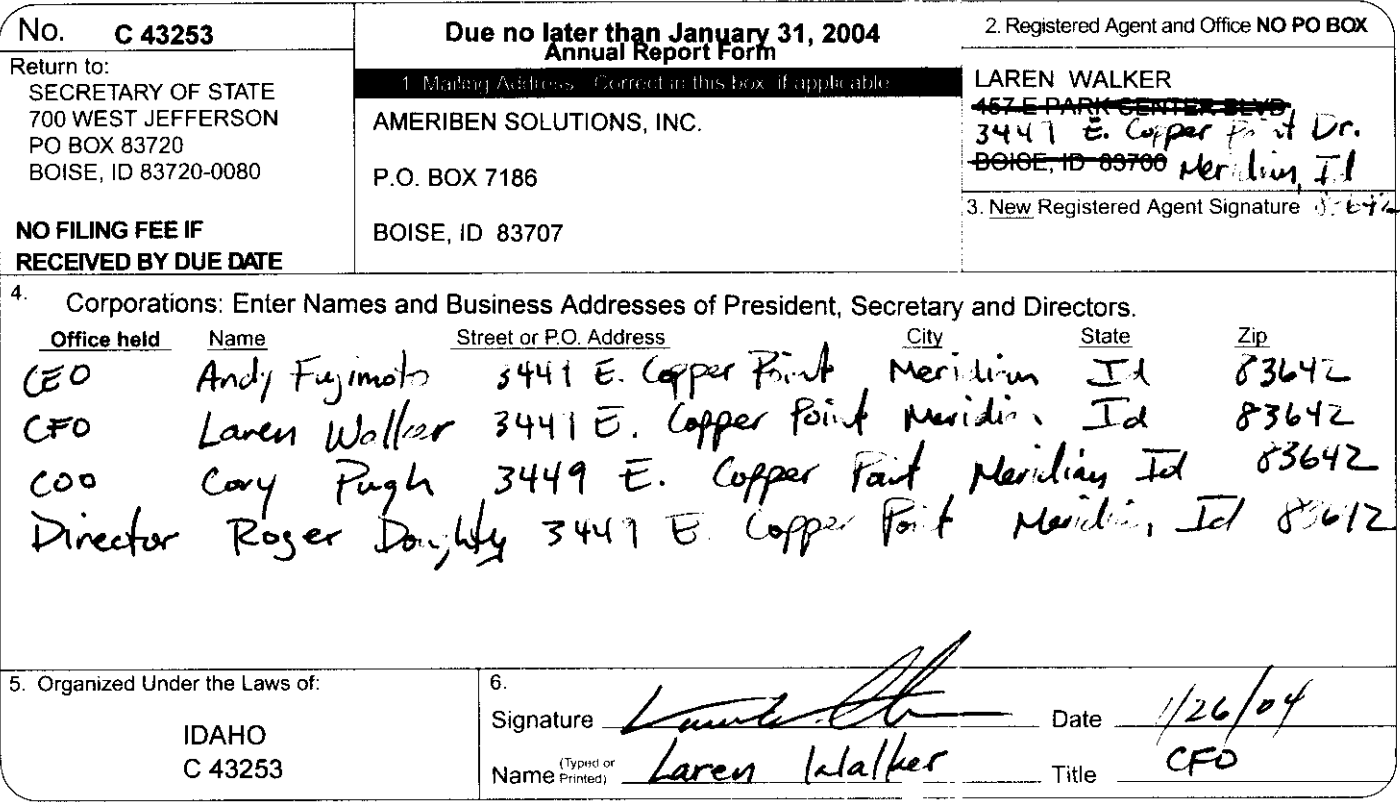 No. C 43253
Return to:
SECRETARY OF STATE
700 WEST JEFFERSON
PO BOX 83720
BOISE, ID 83720-0080
NO FILING FEE IF
RECEIVED BY DUE DATE
Due no later than January 31, 2004
Annual Report Form
1. Mailing Address. Correct in this box if applicable
AMERIBEN SOLUTIONS, INC.
P.O. BOX 7186
BOISE, ID 83707
2. Registered Agent and Office NO PO BOX
LAREN WALKER
457 E PARK CENTER BLVD
3449 E. Copper Point Dr.
BOISE, ID 83700 Meridian, Id
3. New Registered Agent Signature 83642
4. Corporations: Enter Names and Business Addresses of President, Secretary and Directors.
Office held Name Street or P.O. Address City State Zip
CEO Andy Fujimoto 3449 E. Copper Point Meridian Id 83642
CFO Laren Walker 3449 E. Copper Point Meridian Id 83642
COO Cory Pugh 3449 E. Copper Point Meridian Id 83642
Director Roger Doughty 3449 E. Copper Point Meridian, Id 83642
5. Organized Under the Laws of:
IDAHO
C 43253
6.
Signature Date 1/26/04
Name (Typed or Printed) Laren Walker Title CFO